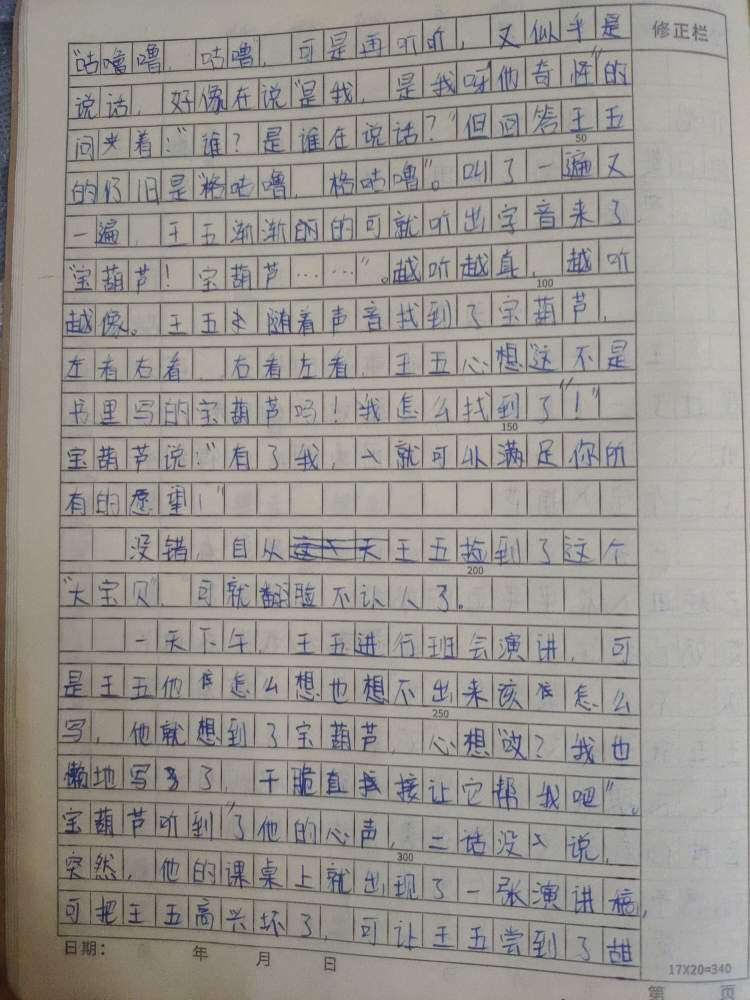 "咕噜噜，咕噜"，可是再听听，又似乎是
修正栏
说话，好像在说"是我，是我呀他奇怪"的
问着："谁？是谁在说话？"但回答王五
50
的仍旧是"格咕噜，格咕噜"。叫了一遍又
一遍，王五渐渐的的可就听出字音来了
"宝葫芦！宝葫芦……"。越听越真，越听
100
越像。王五随着声音找到了宝葫芦，
左看右看，右看左看，王五心想"这不是
书里写的宝葫芦吗！我怎么找到了"！"
150
宝葫芦说："有了我，就可以满足你所
有的愿望！"
没错，自从王五捡到了这个
200
"大宝贝"，可就翻脸不认人了。
一天下午，王五进行班会演讲，可
是王五他怎么想也想不出来该怎么
250
写，他就想到了宝葫芦，心想"哎？我也
懒地写了，干脆直接让它帮我吧"。
宝葫芦听到"了他的心声，二话没说，
300
突然，他的课桌上就出现了一张演讲稿，
可把王五高兴坏了，可让王五尝到了甜
日期： 年 月 日
17X20=340
第 页